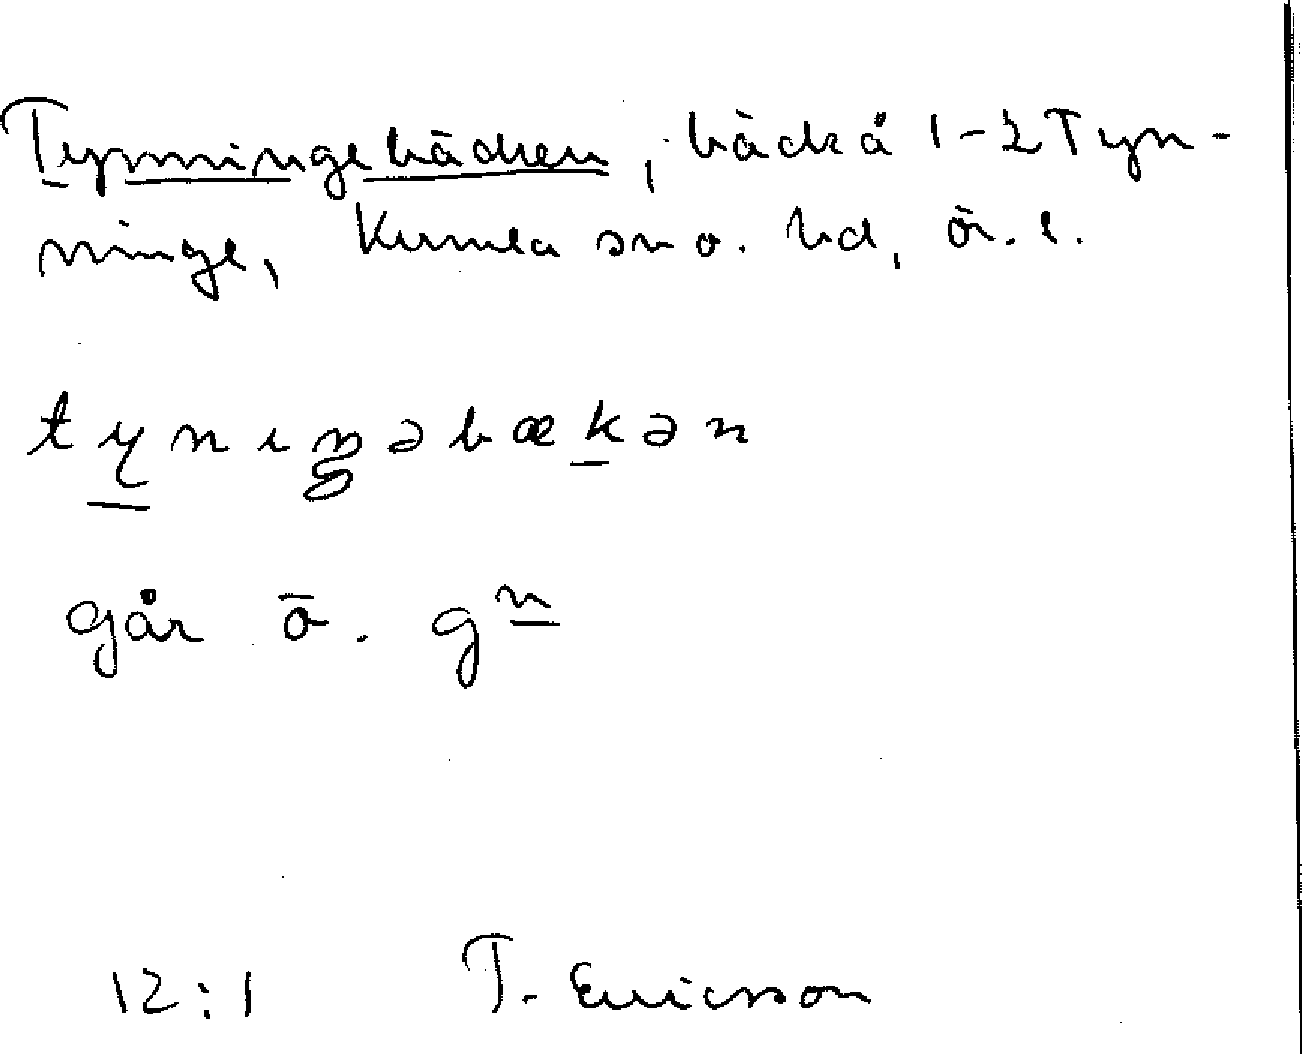 Tynningebäcken, bäck å 1-2 Tyn-
ninge, Kumla sn o. hd, ö. l.
tynıŋəbækən
går ö. gn
12:1 T. Ericsson